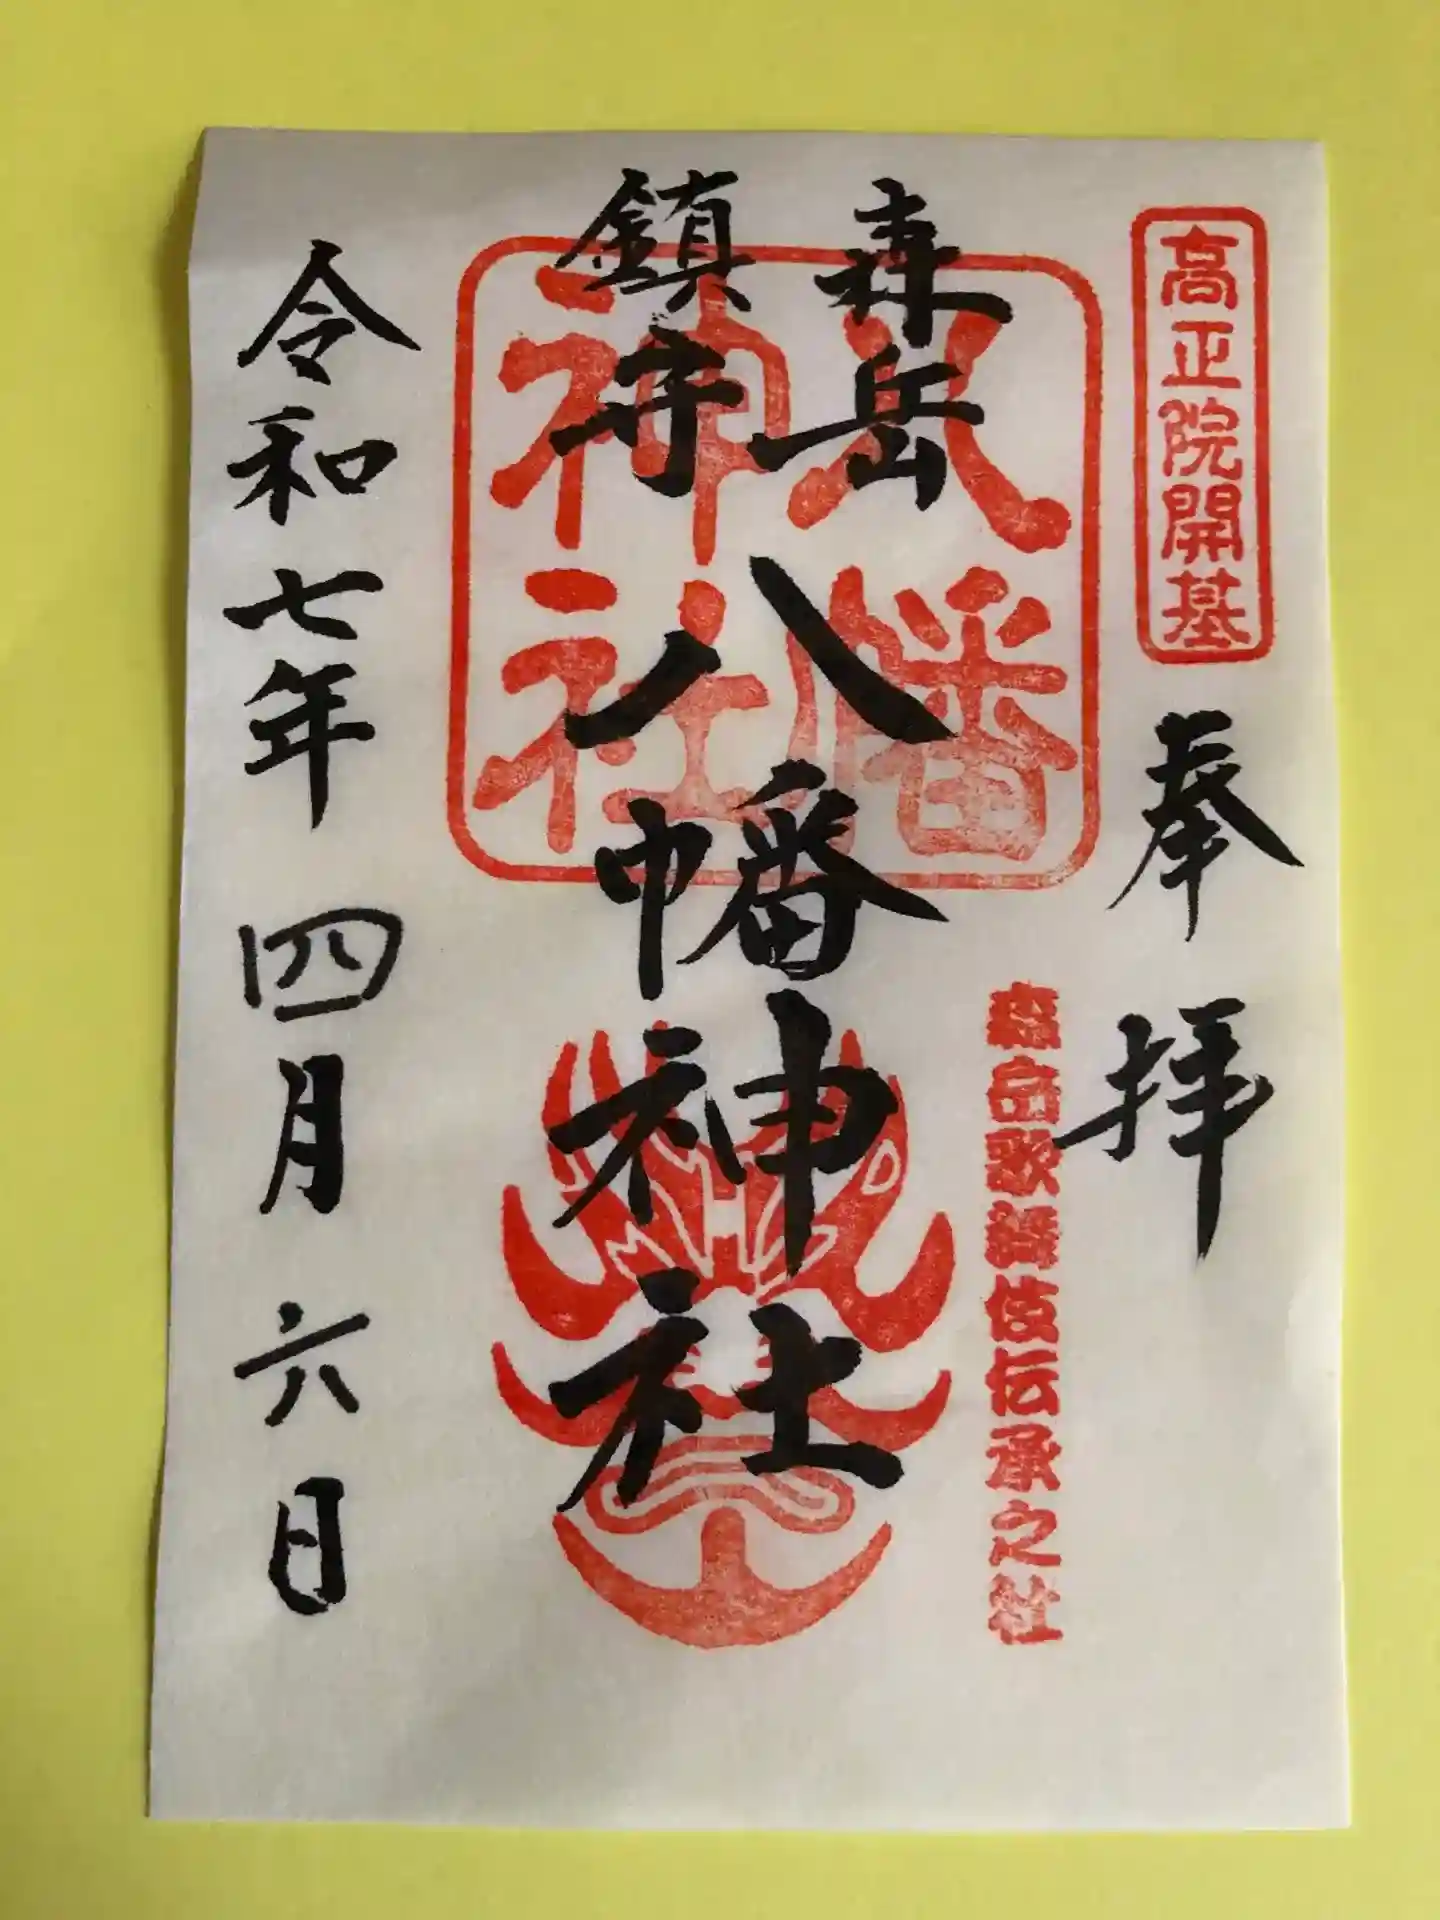 高正院開基
奉拝
森岳歌舞伎伝承之社
森岳
鎮守
八幡神社
八幡
神社
令和七年 四月 六日